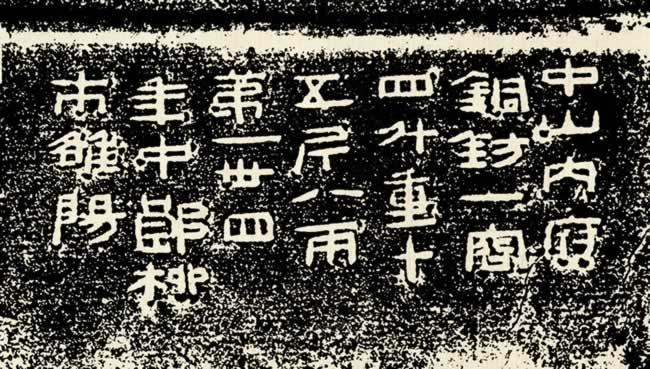 中山内府
銅鈁一容
四斗重十
五斤八兩
第一卅四
年中郎柳
市雒陽